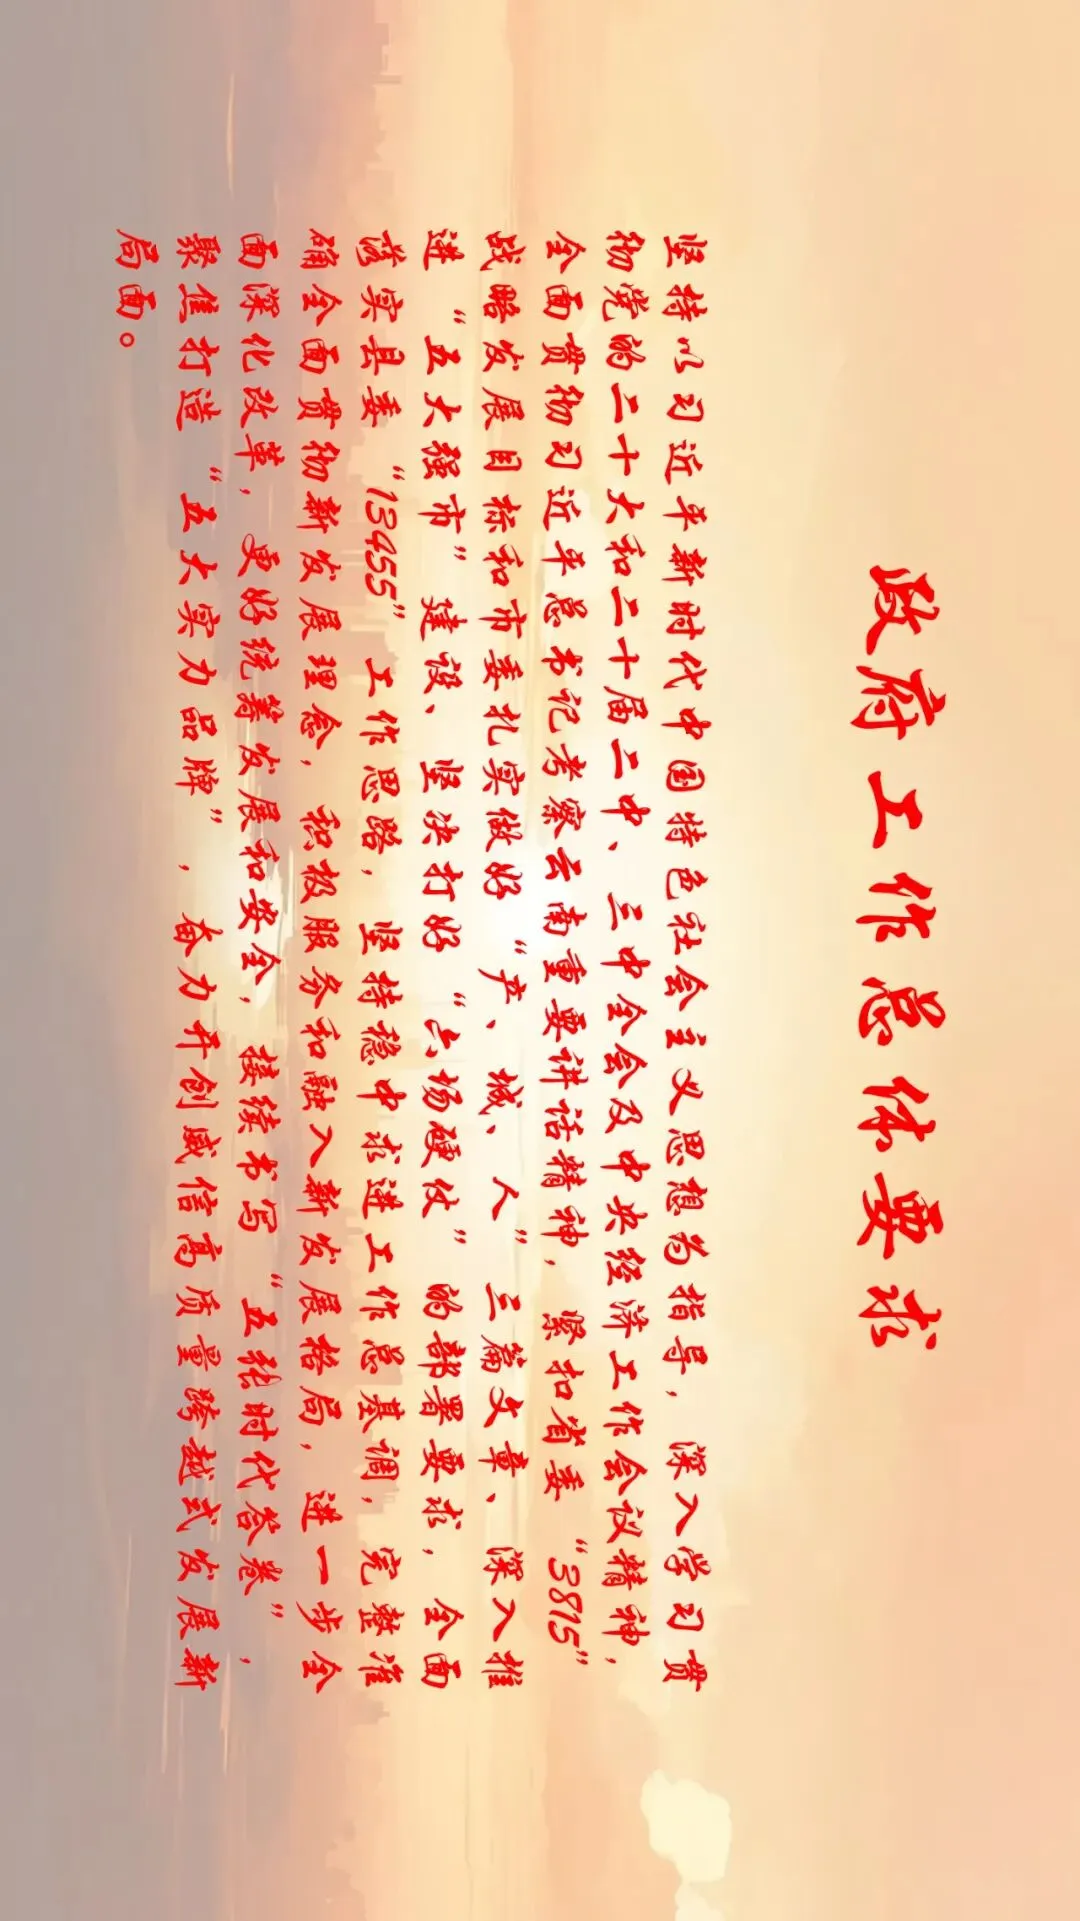 政府工作总体要求
坚持以习近平新时代中国特色社会主义思想为指导，深入学习贯
彻党的二十大和二十届二中、三中全会及中央经济工作会议精神，
全面贯彻习近平总书记考察云南重要讲话精神，紧扣省委“3815”
战略发展目标和市委扎实做好“产、城、人”三篇文章、深入推
进“五大强市”建设、坚决打好“六场硬仗”的部署要求，全面
落实县委“13455”工作思路，坚持稳中求进工作总基调，完整准
确全面贯彻新发展理念，积极服务和融入新发展格局，进一步全
面深化改革，更好统筹发展和安全，接续书写“五张时代答卷”，
聚焦打造“五大实力品牌”，奋力开创威信高质量跨越式发展新
局面。